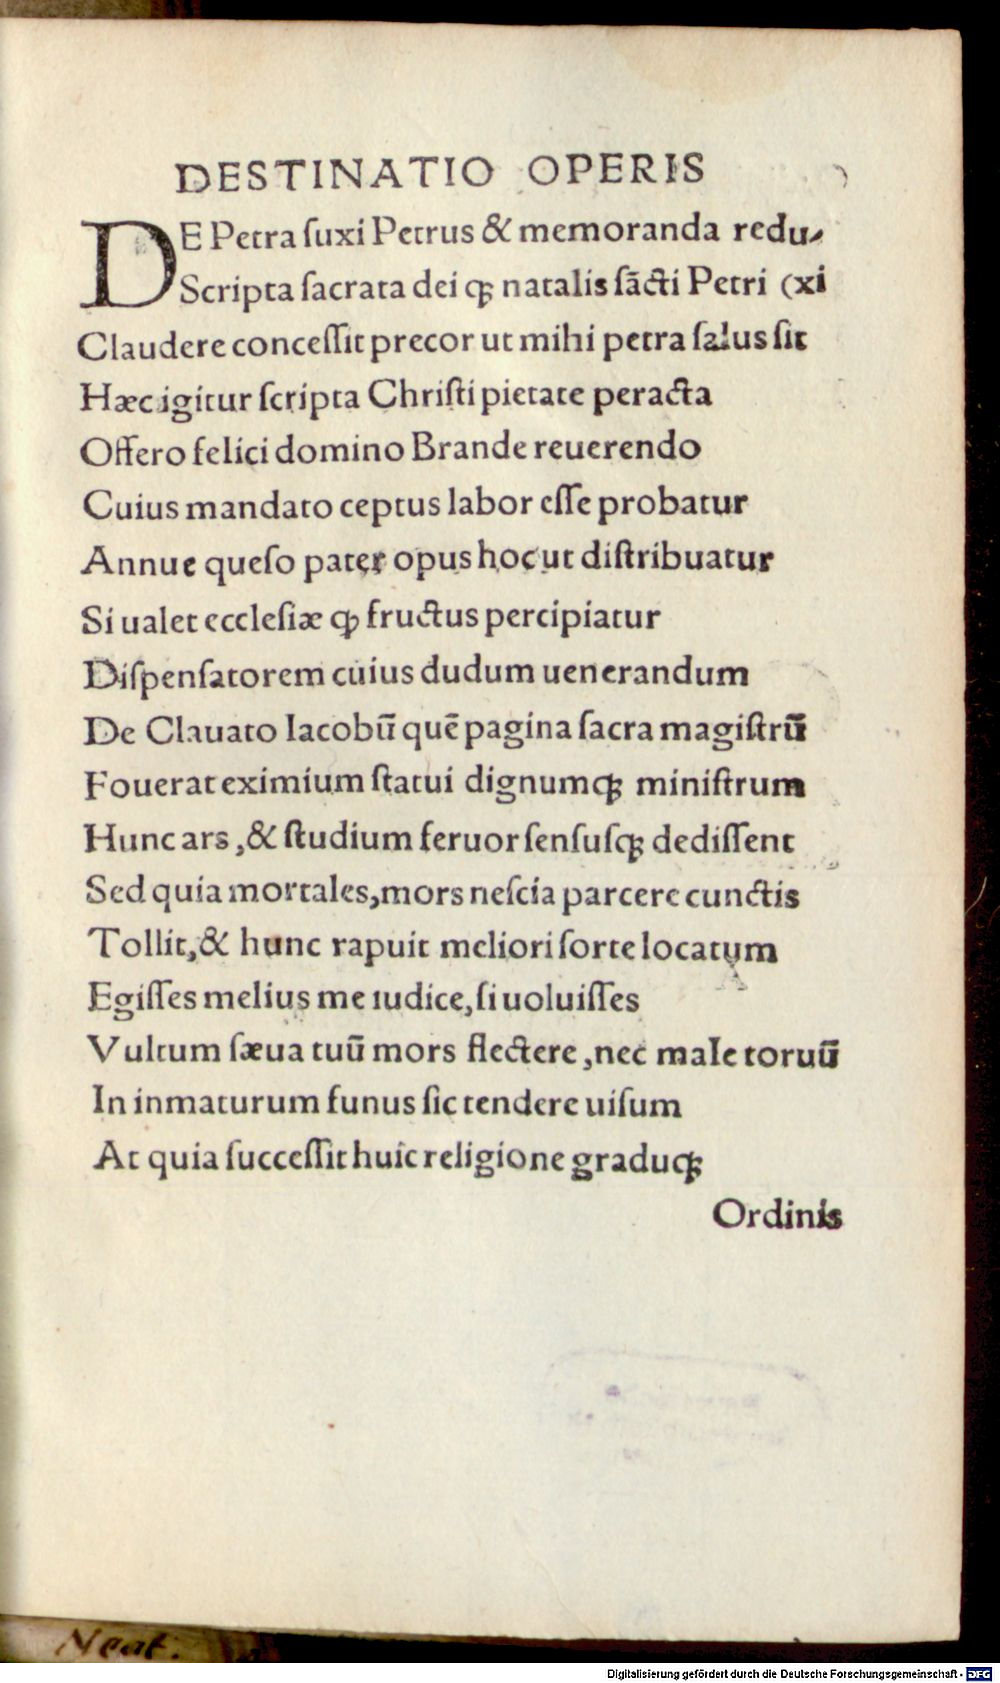 DESTINATIO OPERIS
DE Petra ſuxi Petrus & memoranda redu-
Scripta ſacrata dei qꝫ natalis ſācti Petri (xi
Claudere conceſſit precor ut mihi petra ſalus ſit
Hæc igitur ſcripta Chriſti pietate peracta
Offero felici domino Brande reuerendo
Cuius mandato ceptus labor eſſe probatur
Annue queſo pater opus hoc ut diſtribuatur
Si ualet eccleſiæ ꝙ fructus percipiatur
Diſpenſatorem cuius dudum uenerandum
De Clauato Iacobū quē pagina ſacra magiſtrū
Fouerat eximium ſtatui dignumqꝫ miniſtrum
Hunc ars ,& ſtudium feruor ſenſuſqꝫ dediſſent
Sed quia mortales,mors neſcia parcere cunctis
Tollit,& hunc rapuit meliori ſorte locatum
Egiſſes melius me iudice,ſi uoluiſſes
Vultum ſæua tuū mors flectere ,nec male toruū
In inmaturum funus ſic tendere uiſum
At quia ſucceſſit huic religione graduqꝫ
Ordinis
Neat.
Digitalisierung gefördert durch die Deutsche Forschungsgemeinschaft - DFG